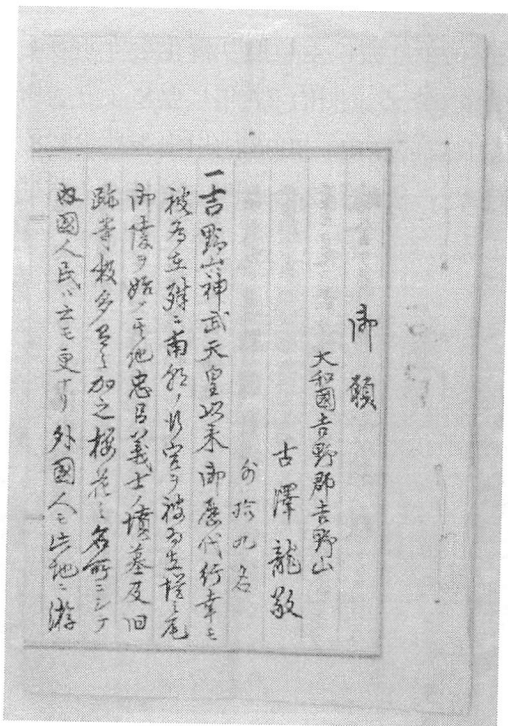 御願
大和國吉野郡吉野山
古澤龍敬
外拾九名
一吉野山神武天皇以来御歴代行幸モ
被為在殊ニ南朝ノ行宮ヲ被為立塔之尾
御陵ヲ始メ其他忠臣義士ノ墳墓及旧
跡等数多有之加之櫻花之名所ニシテ
内國人民ハ云モ更ナリ外國人モ此地ニ游